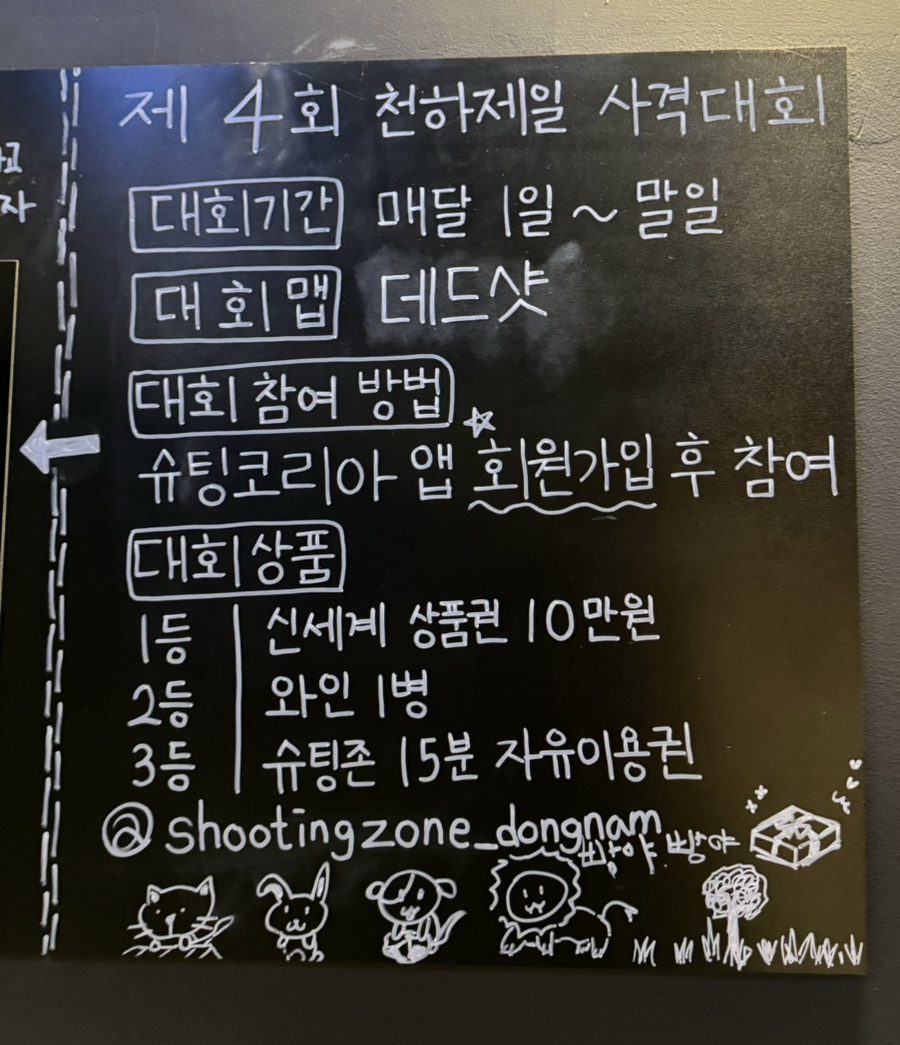 고
자
제 4회 천하제일 사격대회
대회기간 매달 1일 ~ 말일
대회 맵 데드샷
대회 참여 방법
슈팅코리아 앱 회원가입 후 참여
대회상품
1등 신세계 상품권 10만원
2등 와인 1병
3등 슈팅존 15분 자유이용권
@shootingzone_dongnam
빵야 빵야